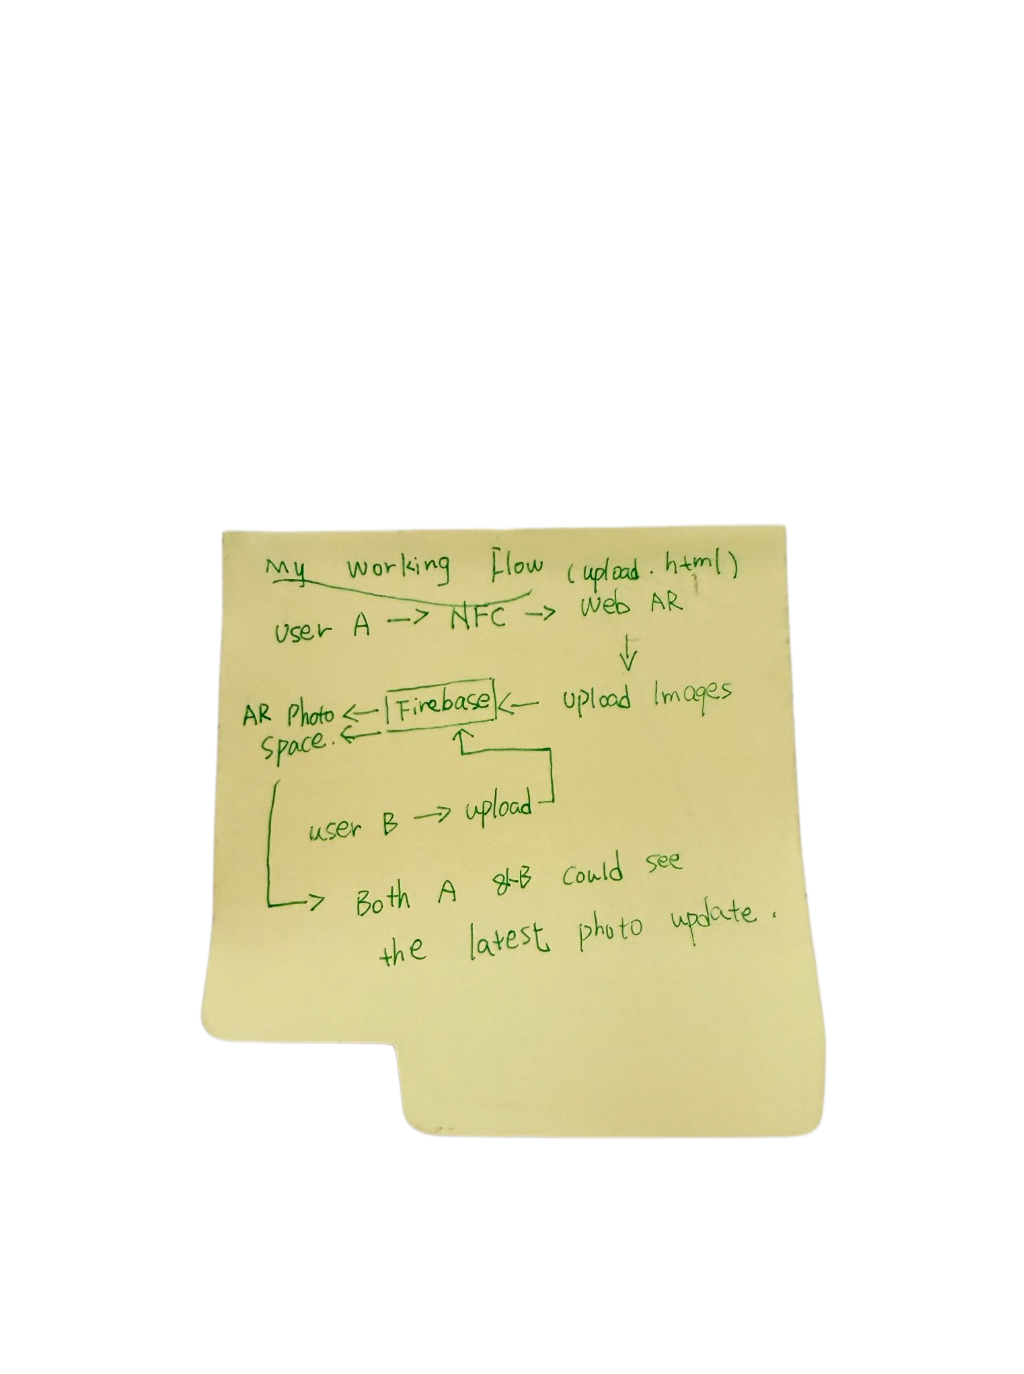 My working flow (upload.html)
User A -> NFC -> Web AR
↓
AR Photo <- Firebase <- upload Images
Space. <-
user B -> upload
-> Both A & B could see
the latest photo update.